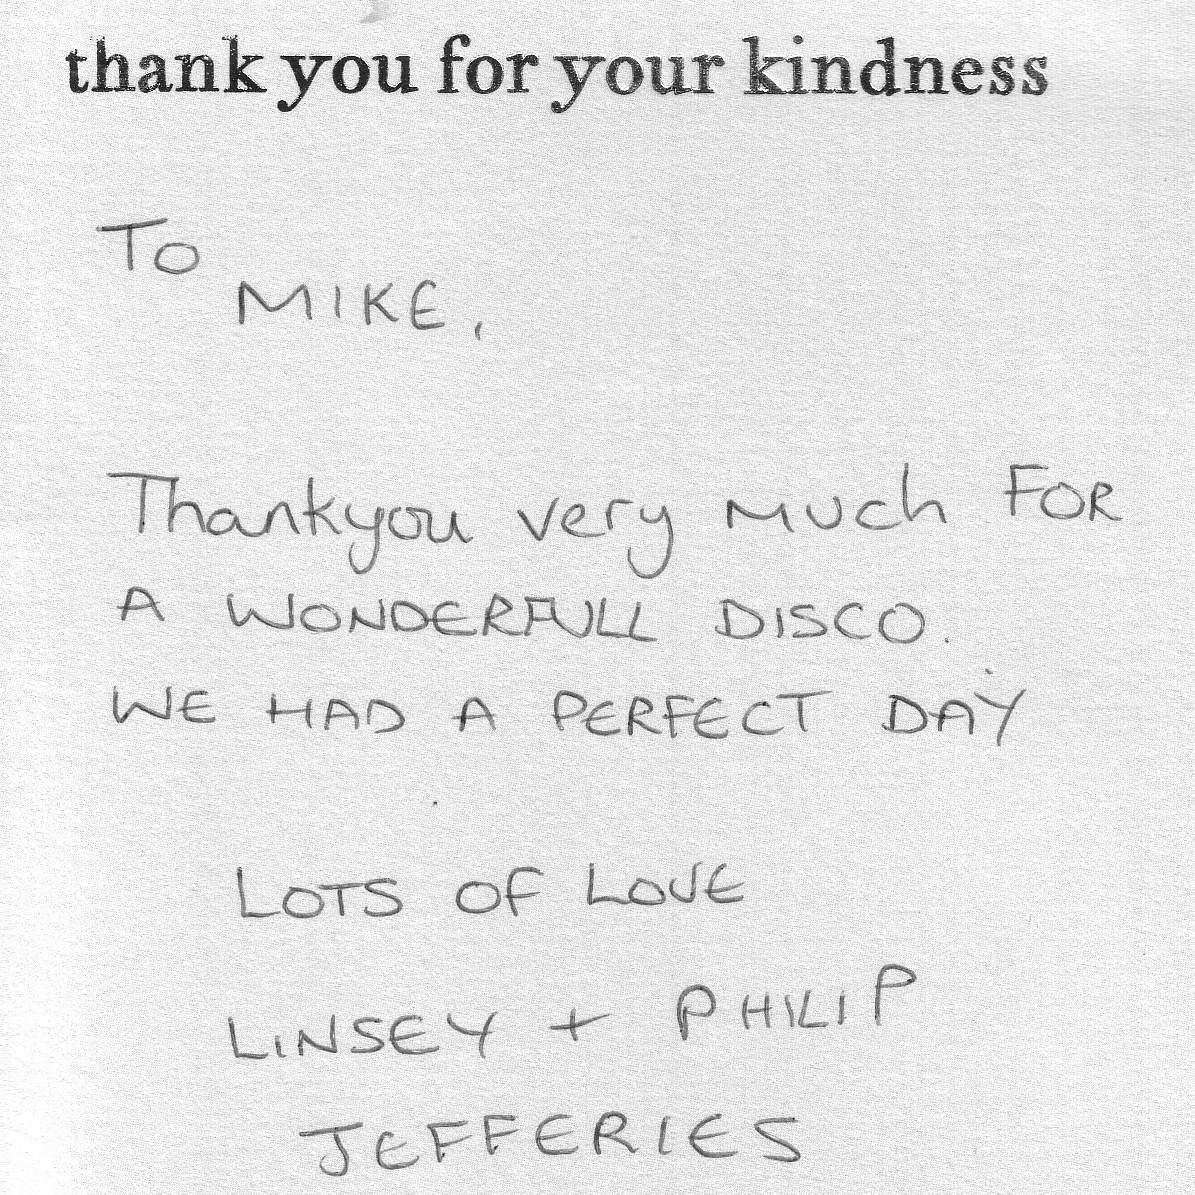 thank you for your kindness
To
MIKE,
Thankyou very much FOR
A WONDERFULL DISCO.
WE HAD A PERFECT DAY
LOTS OF LOVE
LINSEY + PHILIP
JEFFERIES